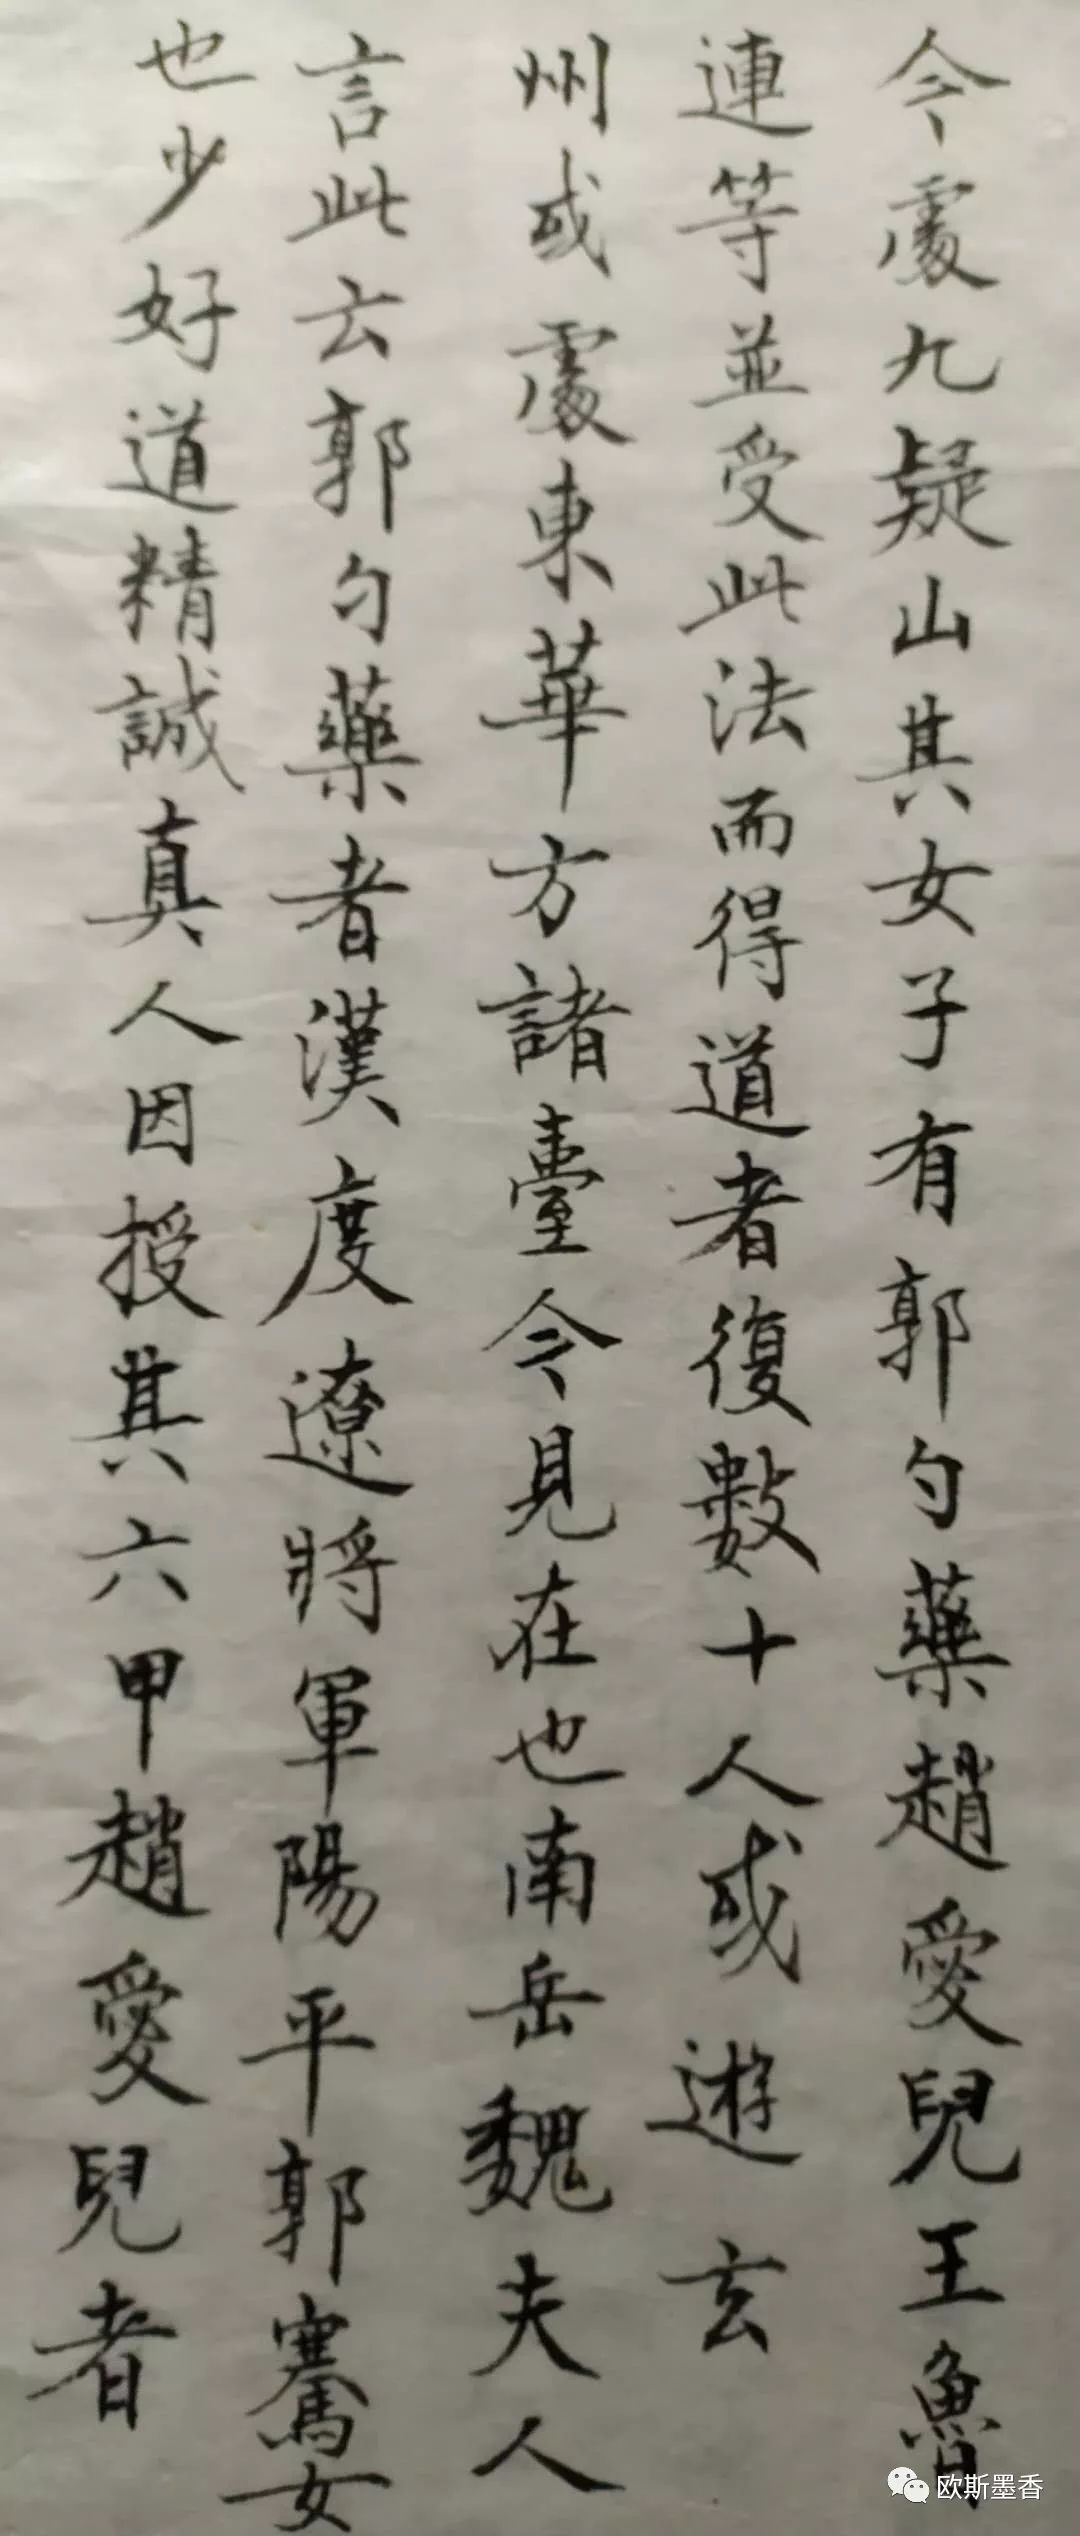 今處九疑山其女子有郭勺藥趙愛兒王魯
連等並受此法而得道者復數十人或遊玄
州或處東華方諸臺今見在也南岳魏夫人
言此云郭勺藥者漢度遼將軍陽平郭騫女
也少好道精誠真人因授其六甲趙愛兒者
欧斯墨香